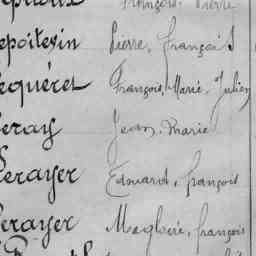 François, Pierre
epoitevin Pierre, François
equéret François, Marie, Julien
eray Jean, Marie
Lerayer Edouard, François
erayer Magloire, François